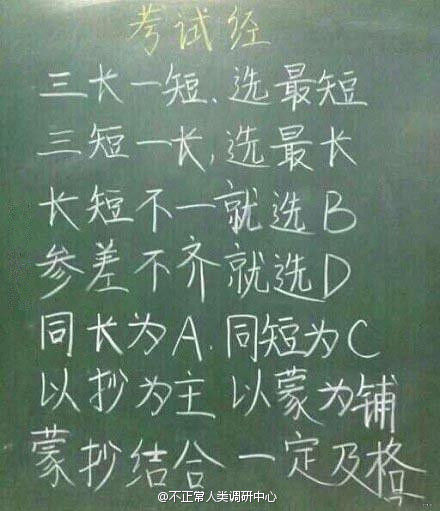 考试经
三长一短、选最短
三短一长,选最长
长短不一就选B
参差不齐就选D
同长为A.同短为C
以抄为主 以蒙为铺
蒙抄结合 一定及格
@不正常人类调研中心